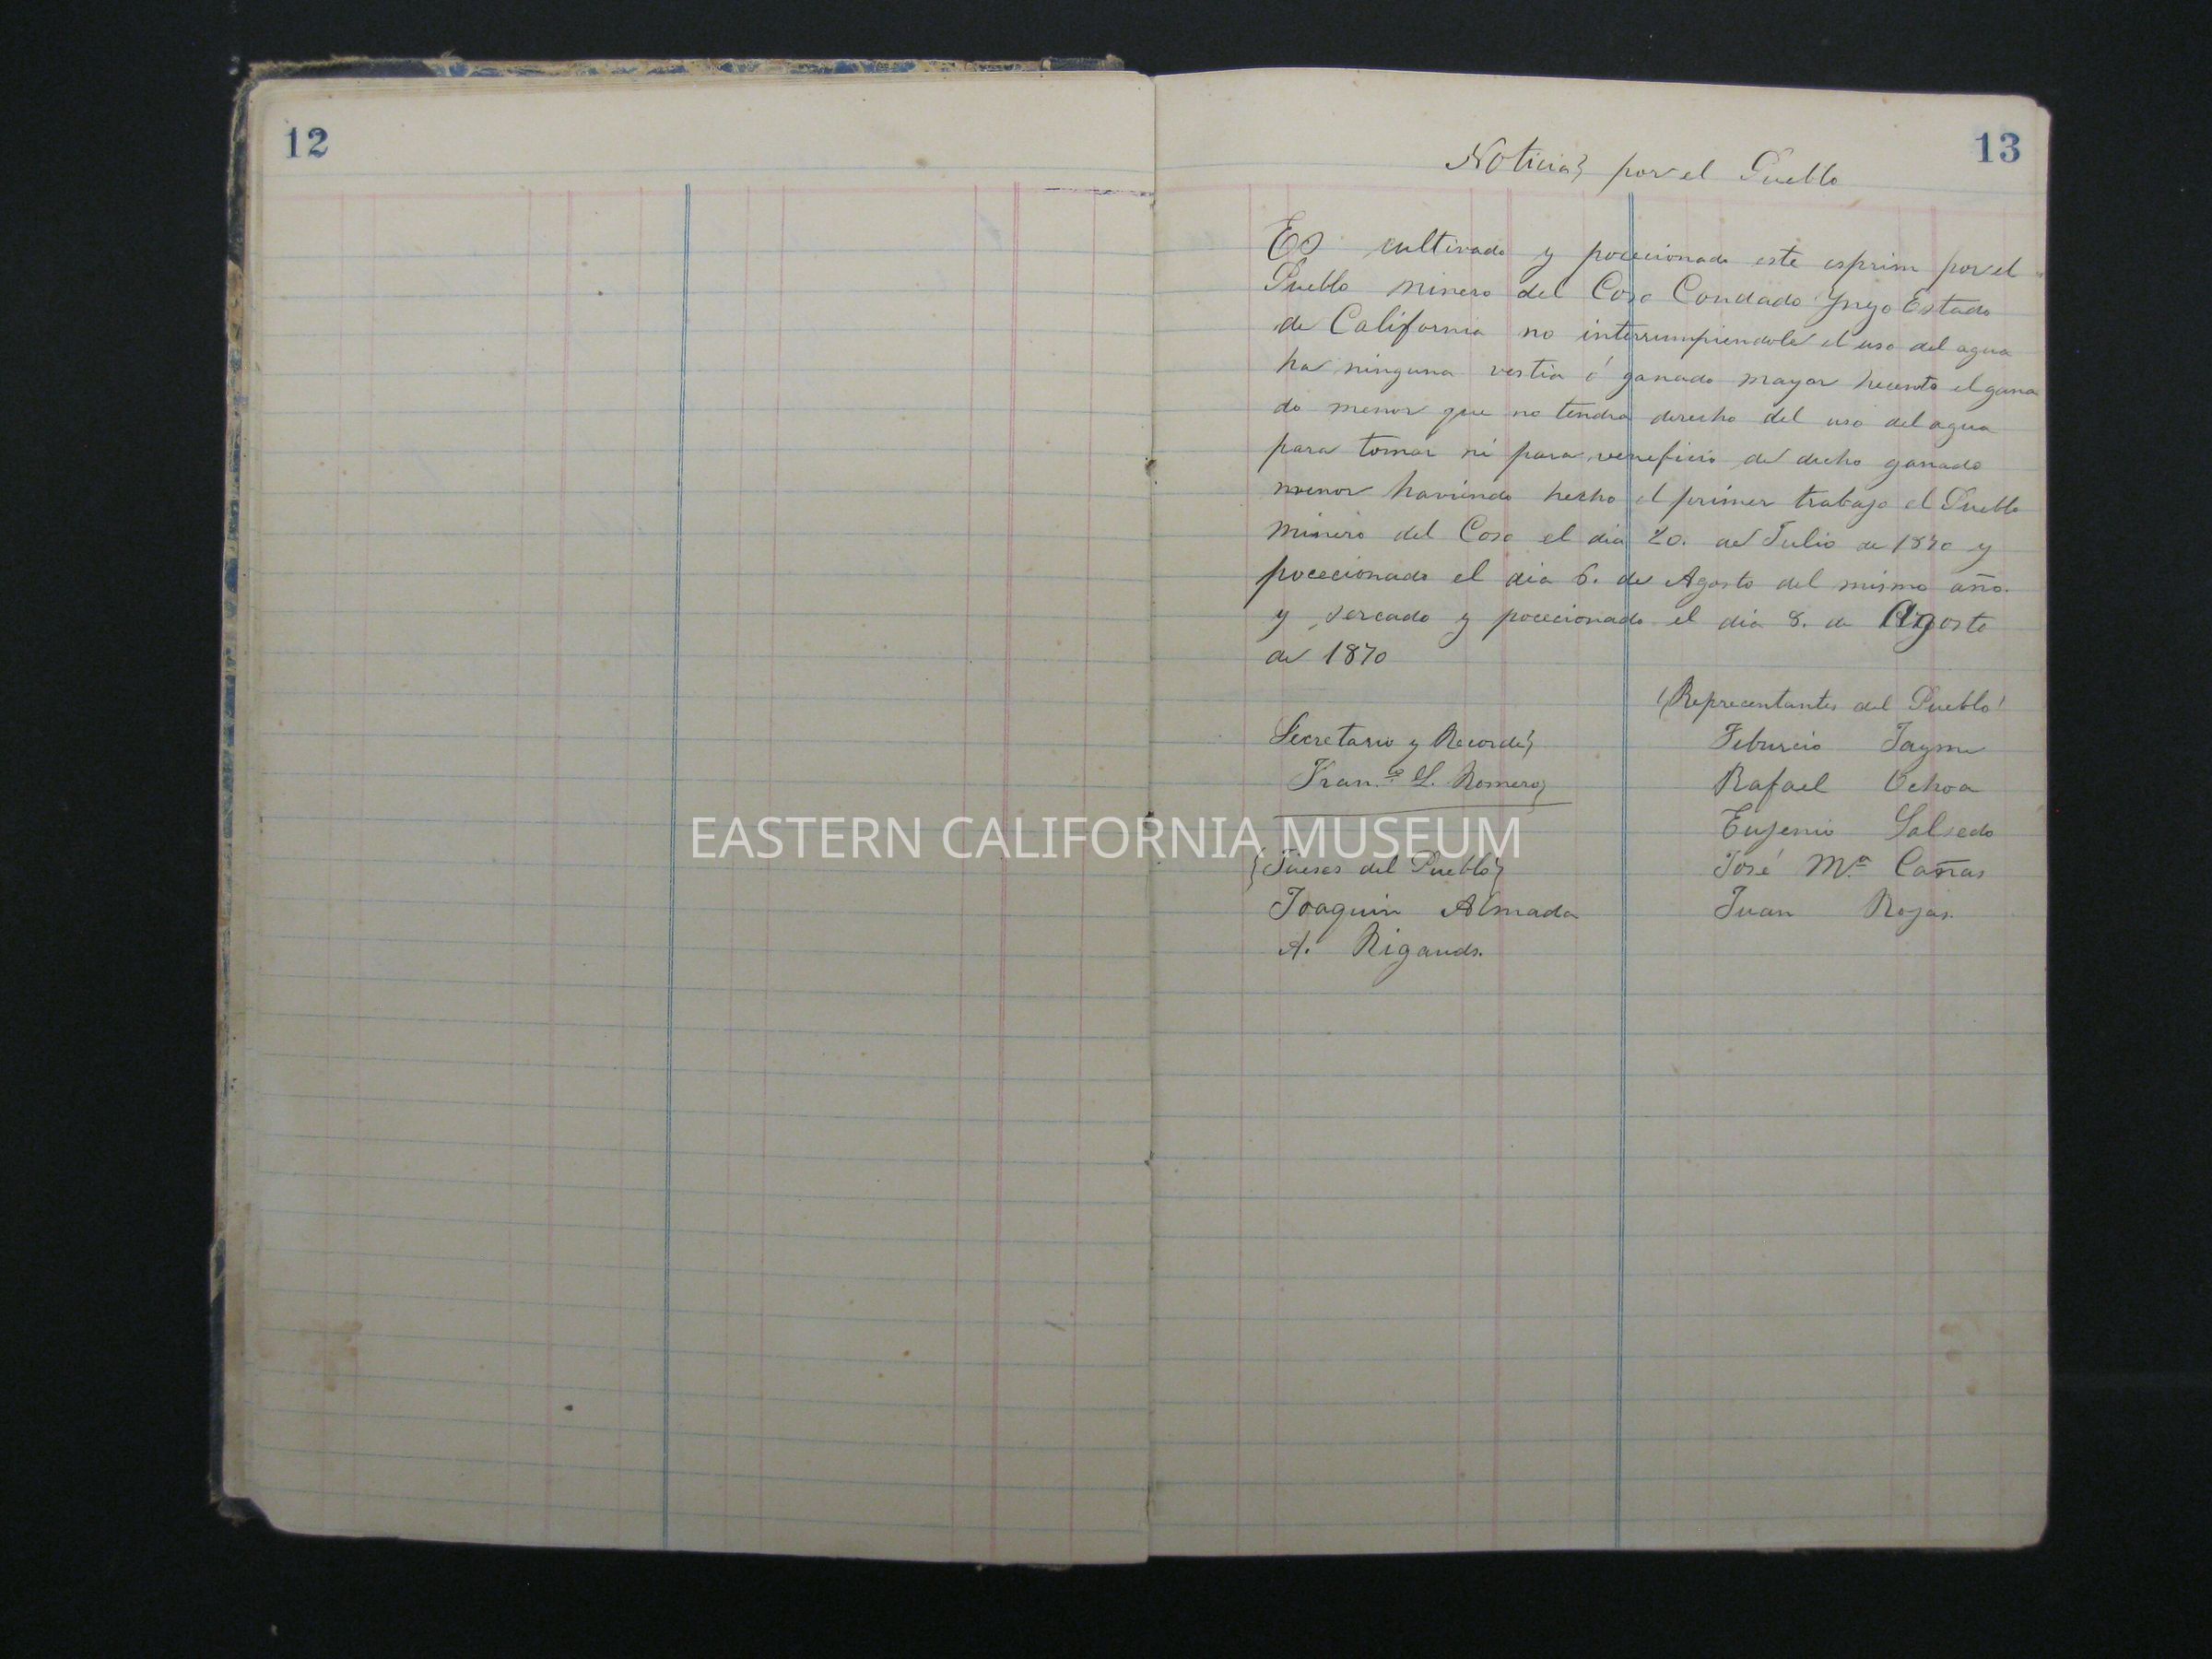 12
13
Noticia} por el Pueblo
Es cultivado y pocecionado este esprin por el
Pueblo minero del Coso Condado Ynyo Estado
de California no interrumpiendole el uso del agua
ha ninguna vestia ó ganado mayor hecento el gana
do menor que no tendra derecho del uso del agua
para tomar ni para veneficio de dicho ganado
menor haviendo hecho el primer trabajo el Pueblo
minero del Coso el dia 20. de Julio de 1870 y
pocecionado el dia 6. de Agosto del mismo año.
y sercado y pocecionado el dia 8. de Agosto
de 1870
(Reprecentantes del Pueblo)
Secretario y Recorde}
Tiburcio Jayme
Fran.co L. Romero}
Rafael Ochoa
Eugenio Salsedo
EASTERN CALIFORNIA MUSEUM
{Jueses del Pueblo}
José M.a Cañas
Joaquin Almada
Juan Rojas.
A. Rigauds.